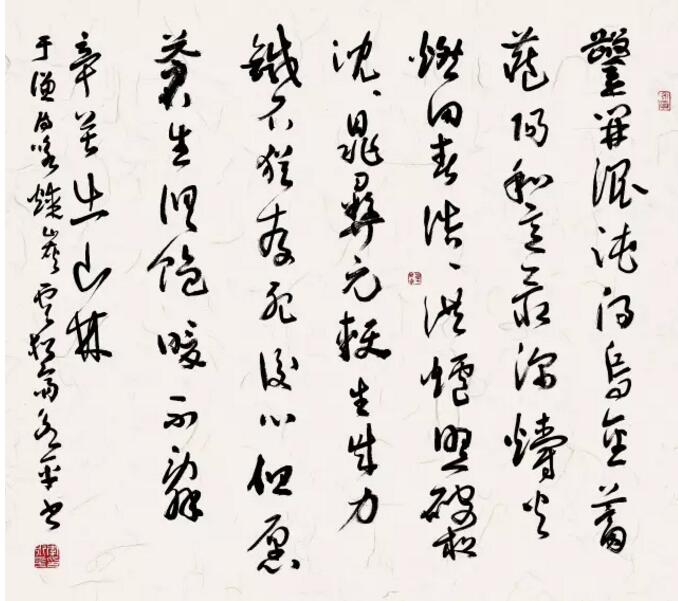 鑿開混沌得烏金蓄
藏陽和意最深爝火
燃回春浩浩洪爐照破夜
沈沈鼎彝元賴生成力
鐵石猶存死後心但愿
蒼生俱飽暖不辭
辛苦出山林
于謙詩咏煤炭